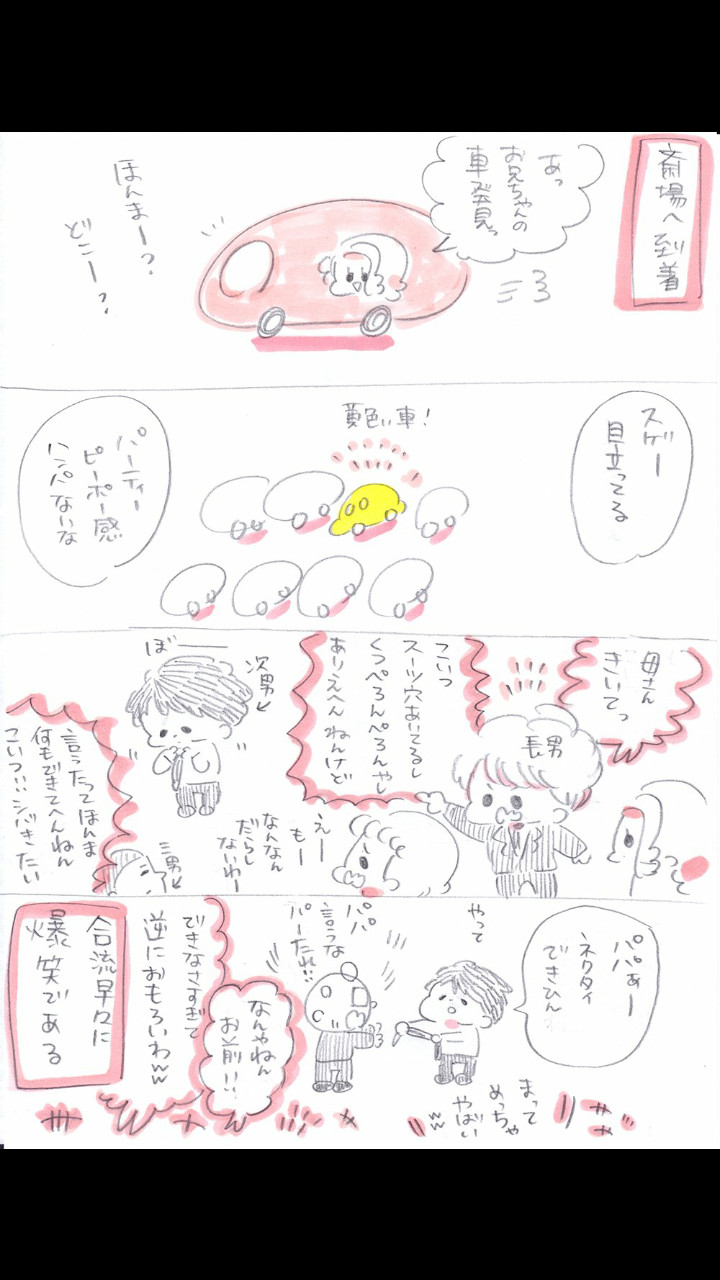 斎場へ到着
あっ
お兄ちゃんの
車発見っ
ほんまー？
どこー？
スゲー
目立ってる
黄色い車！
パーティー
ピーポー感
ハンパないな
母さん
きいてっ
長男
こいつ
スーツ穴あいてるし
くつぺろんぺろんやし
ありえへんねんけど
えー
もー
なんなん
だらし
ないわー
次男
ぼーー
三男
言うたってほんま
何もできてへんねん
こいつ!!シバきたい
パパぁー
ネクタイ
できひん
やって
パパ
言うな
バーたれ!!
なんやねん
お前!!
できなさすぎて
逆におもろいわww
まって
めっちゃ
やばい
ww
合流早々に
爆笑である